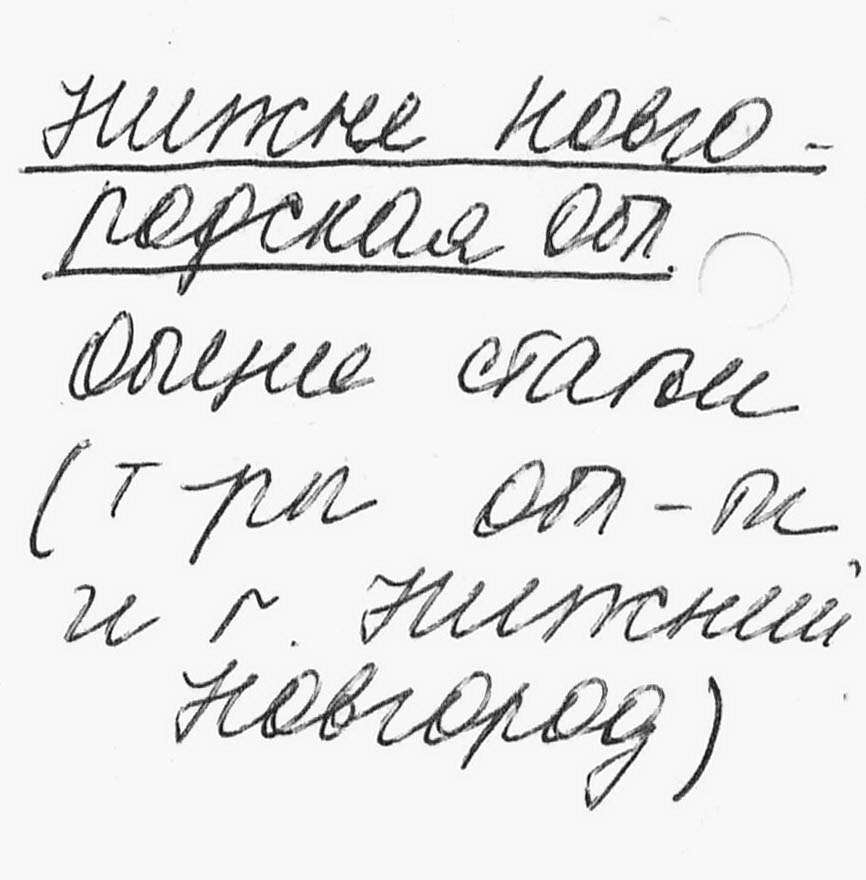 Нижне новго-
родская обл.
Общие статьи
(т-ры обл-ти
и г. Нижний
Новгород)